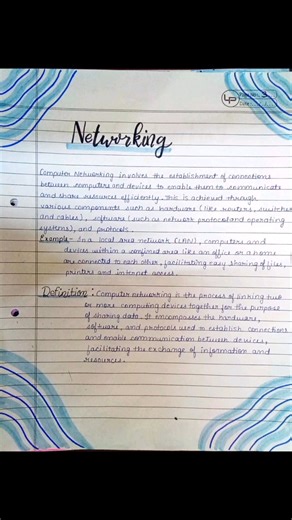 LP
Networking
Computer Networking involves the establishment of connections
between computers and devices to enable them to communicate
and share resources efficiently. This is achieved through
various components such as hardware (like routers, switches
and cables), software (such as network protocol and operating
systems), and protocols.
Example- In a local area network (LAN), computers and
devices within a confined area like an office or a home
are connected to each other, facilitating easy sharing of files,
printers and internet access.
Definition : Computer networking is the process of linking two
or more computing devices together for the purpose
of sharing data. It encompasses the hardware,
software, and protocols used to establish connections
and enable communication between devices,
facilitating the exchange of information and
resources.